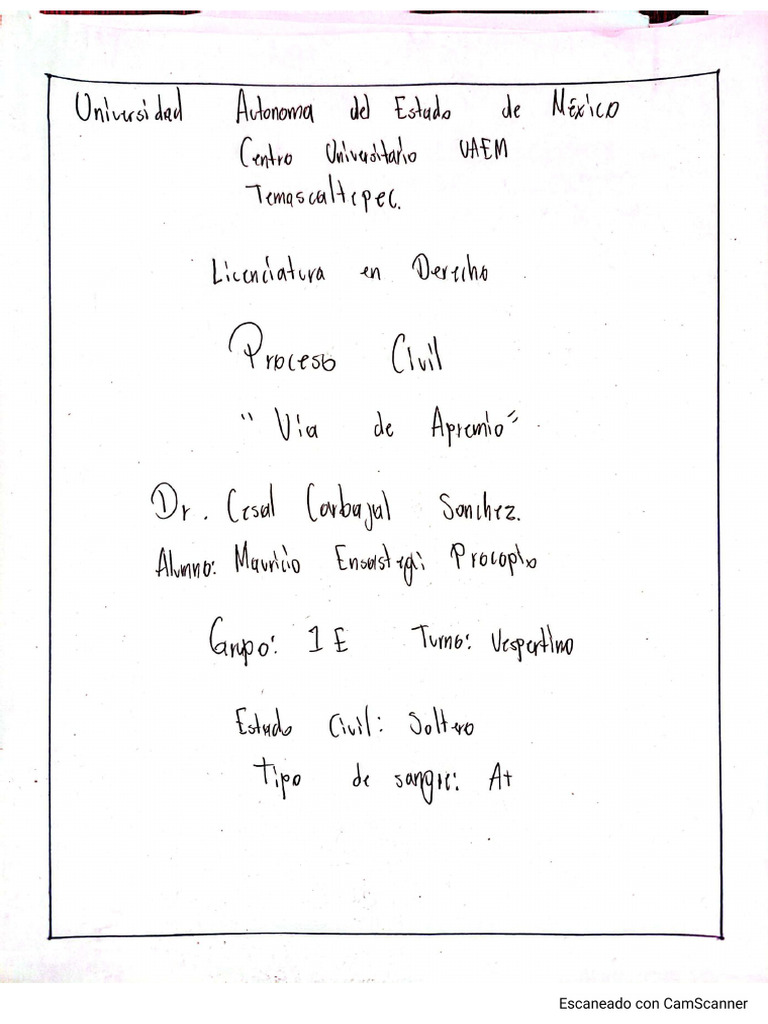 Universidad Autonoma del Estado de México
Centro Universitario UAEM
Temascaltepec.
Licenciatura en Derecho
Proceso Civil
"Vía de Apremio"
Dr. Cesal Carbajal Sanchez.
Alumno: Mauricio Ensastegi Procopio
Grupo: 1E Turno: Vespertino
Estado Civil: Soltero
Tipo de sangre: A+
Escaneado con CamScanner